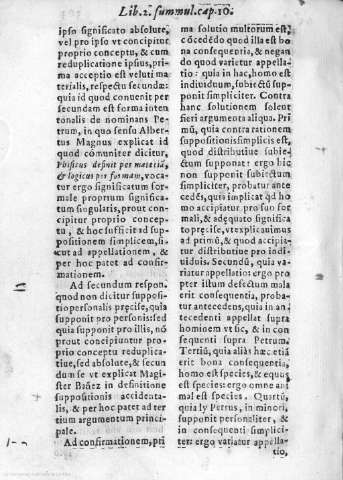 Lib. 2. summul. cap. 10.
ipso significato absolute,
vel pro ipso vt concipitur
proprio conceptu, & cum
reduplicatione ipsius, pri-
ma acceptio est veluti ma
terialis, respectu secundæ:
quia id quod conuenit per
secundam est forma inten
tionalis de nominans Pe-
trum, in quo sensu Alber-
tus Magnus explicat id
quod comuniter dicitur,
Phisicus definit per materiã,
& logicus per formam, voca-
tur ergo significatum for-
male proprium significa-
tum singularis, prout con-
cipitur proprio concep-
tu, & hoc sufficit ad sup-
positionem simplicem, si-
cut ad appellationem, &
per hoc patet ad confir-
mationem.
Ad secundum respon.
quod non dicitur supposi-
tio personalis præcise, quia
supponit pro personis sed
quia supponit pro illis, nõ
prout concipiuntur pro-
prio conceptu reduplica-
tiue, sed absolute, & secun
dum se vt explicat Magi-
ster Bañez in definitione
suppositionis accidenta-
lis, & per hoc patet ad ter
tium argumentum princi-
pale.
Ad confirmationem, pri
ma solutio multorum est,
cõcedẽdo quod illa est bo
na consequentia, & negan
do quod varietur appella-
tio: quia in hac, homo est
indiuiduum, subiectũ sup-
ponit simpliciter. Contra
hanc solutionem solent
fieri argumenta aliqua. Pri
mũ, quia contra rationem
suppositionis simplicis est,
quod distributiue subie-
ctum supponat: ergo hic
non supponit subiectum
simpliciter, probatur ante
cedẽs, quia implicat qd ho
mo accipiatur pro suo for
mali, & adequato significa
to præcise, vt explicauimus
ad primũ, & quod accipia-
tur distributiue pro indi-
uiduis. Secundũ, quia va-
riatur appellatio: ergo pro
pter istum defectum mala
erit consequentia, proba-
tur antecedens, quia in an
tecedenti appellat supra
hominem vt sic, & in con
sequenti supra Petrum.
Tertiũ, quia aliàs hæc etiã
erit bona consequentia,
homo est species, & equus
est species: ergo omne ani
mal est species. Quartũ,
quia ly Petrus, in minori,
supponit personaliter, &
in consequenti simplici-
ter: ergo variatur appella-
tio,